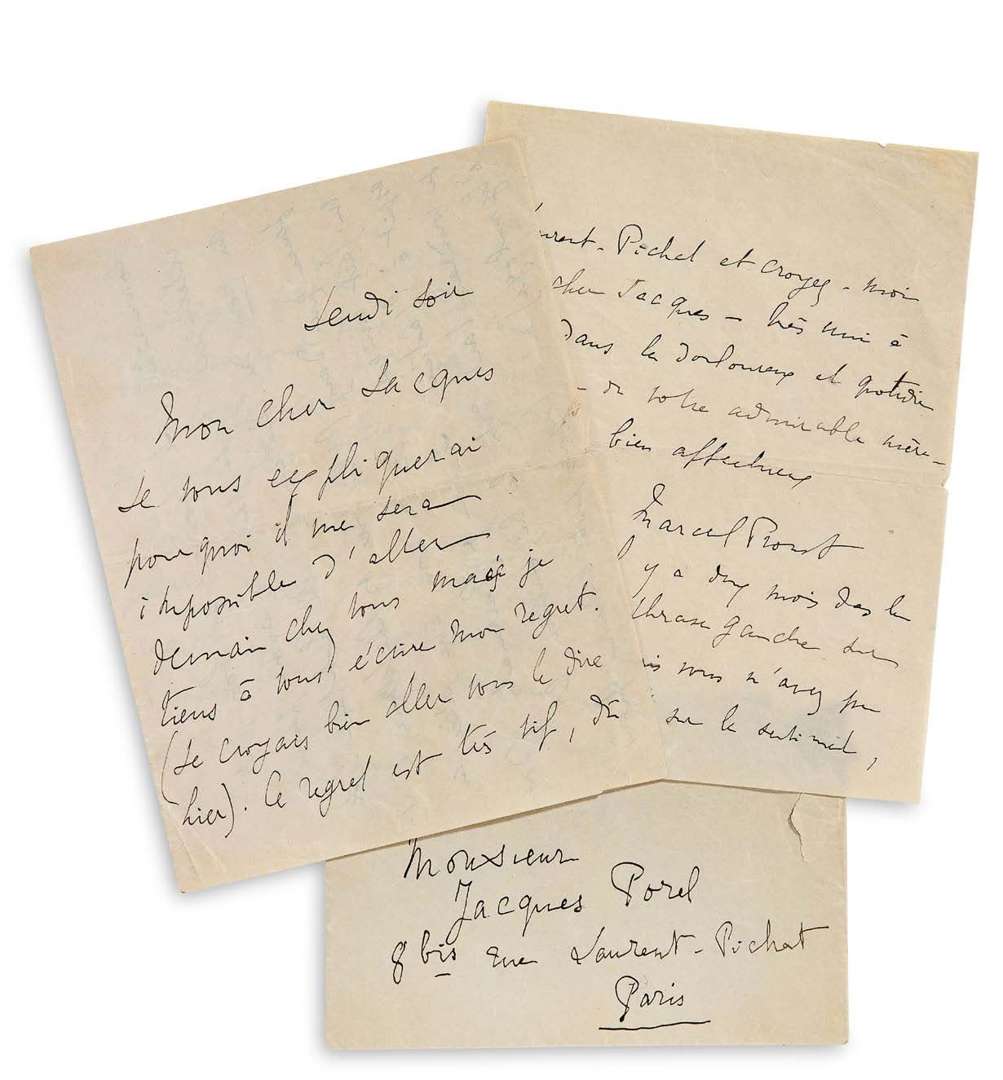 Lundi soir
Mon cher Jacques
Je vous expliquerai
pourquoi il me sera
impossible d'aller
demain chez vous mais je
tiens à vous écrire mon regret.
(Je croyais bien aller vous le dire
hier). Ce regret est très vif,
Laurent-Pichat et croyez-moi
cher Jacques - très uni à
dans le douloureux et quotidien
de votre admirable mère -
bien affectueux
Marcel Proust
y a dix mois dans la
phrase gauche
vous n'avez pu
sur le sentiment,
Monsieur
Jacques Porel
8 bis rue Laurent-Pichat
Paris